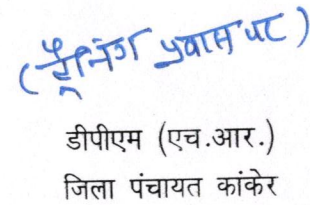 (ट्रैनिंग प्रवास पर)
डीपीएम (एच.आर.)
जिला पंचायत कांकेर